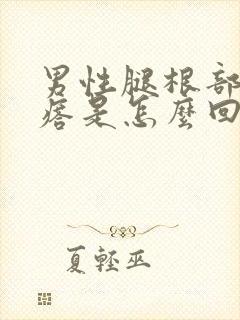 男性腿根部
痞是怎麼回
夏輕巫